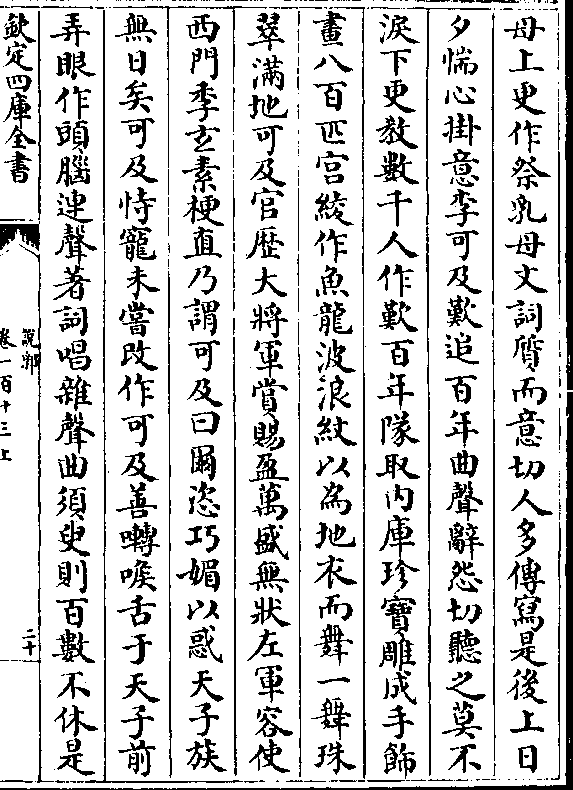 母上更作祭乳母文詞質而意切人多傳寫是後上日
夕惴心掛意李可及歎追百年曲聲辭怨切聽之莫不
淚下更教數千人作歎百年隊取内庫珍寶雕成手飾
畫八百匹宫綾作魚龍波浪紋以為地衣而舞一舞珠
翠滿地可及官歴大將軍賞賜盈萬盛無狀左軍容使
西門季𤣥素梗直乃謂可及曰爾恣巧媚以惑天子族
無日矣可及恃寵未嘗改作可及善囀喉舌于天子前
弄眼作頭腦連聲著詞唱雜聲曲須臾則百數不休是
欽定四庫全書
説郛
卷一百十三上
二十